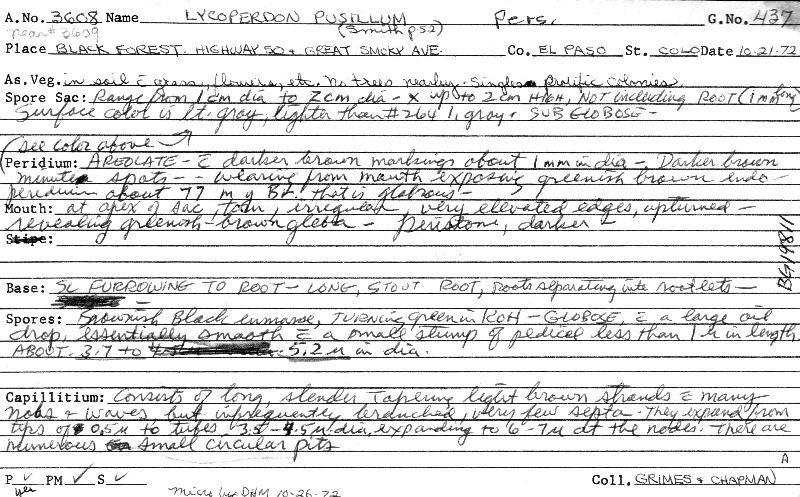 A.No. 3608 Name LYCOPERDON PUSILLUM Pers. G.No. 437
near #3609 (Smith p52)
Place BLACK FOREST. HIGHWAY 50 & GREAT SMOKY AVE. Co. EL PASO St. COLO Date 10-21-72
As. Veg. in soil c̄ grass, flowers, etc. No trees nearby. Singles prolific colonies.
Spore Sac: Range from 1 cm dia to 2 cm dia - x up to 2 cm HIGH, NOT including ROOT (1 mm long)
Surface color is lt. gray, lighter than #264 l. gray. SUBGLOBOSE -
(see color above
Peridium: AREOLATE - c̄ darker brown markings about 1 mm in dia - Darker brown
minute spots - - wearing from mouth exposing greenish brown endo-
peridium about 77 m y Br. that is glabrous -
Mouth: at apex of sac, torn, irregular very elevated edges, upturned -
revealing greenish-brown gleba - Peristome, darker -
Stipe:
BG19811
Base: Sl FURROWING TO ROOT - LONG, STOUT ROOT, roots separating into rootlets -
Spores: Brownish Black enmasse, TURNING green in KOH - GLOBOSE, c̄ a large oil
drop, essentially smooth c̄ a small stump of pedicel less than 1 µ in length
ABOUT. 3.7 to 5.2 µ in dia.
Capillitium: Consists of long, slender Tapering light brown strands c̄ many
nobs & waves, but infrequently branched, very few septa. They expand from
tips of 0.5 µ to tubes 3.5 - 4.5 µ dia, expanding to 6-7 µ at the nodes. There are
numerous small circular pits
A
P ✓ PM ✓ S ✓ Coll. GRIMES & CHAPMAN
yes Micro by DHM 10-26-72